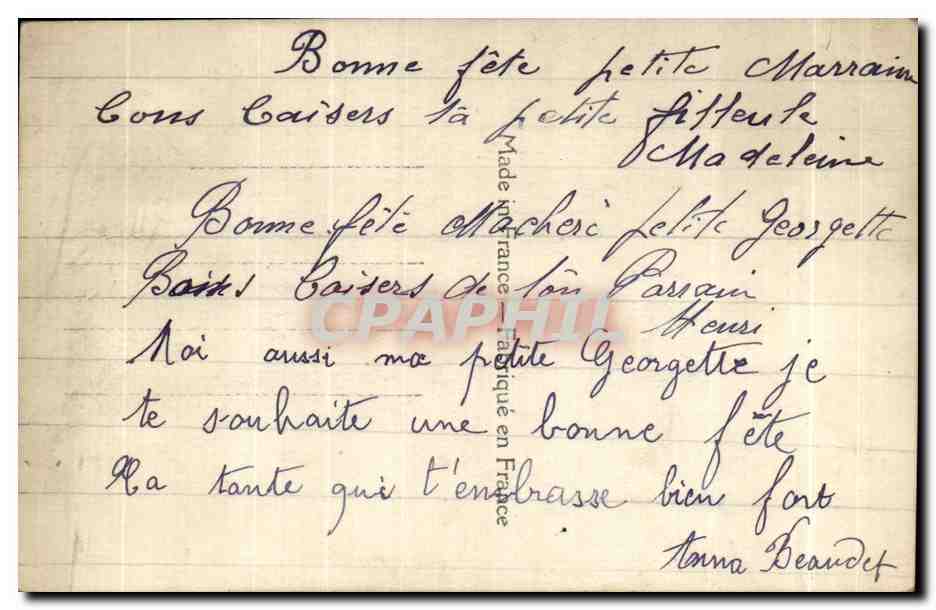 Bonne fête petite Marraine
Bons baisers ta petite filleule
Madeleine
Bonne fête Macheré petite Georgette
Bons baisers de ton Parrain
Henri
Moi aussi ma petite Georgette je
te souhaite une bonne fête
Ta tante qui t'embrasse bien fort
Anna Beaudet
Made in France — Fabriqué en France
CPAPHIL